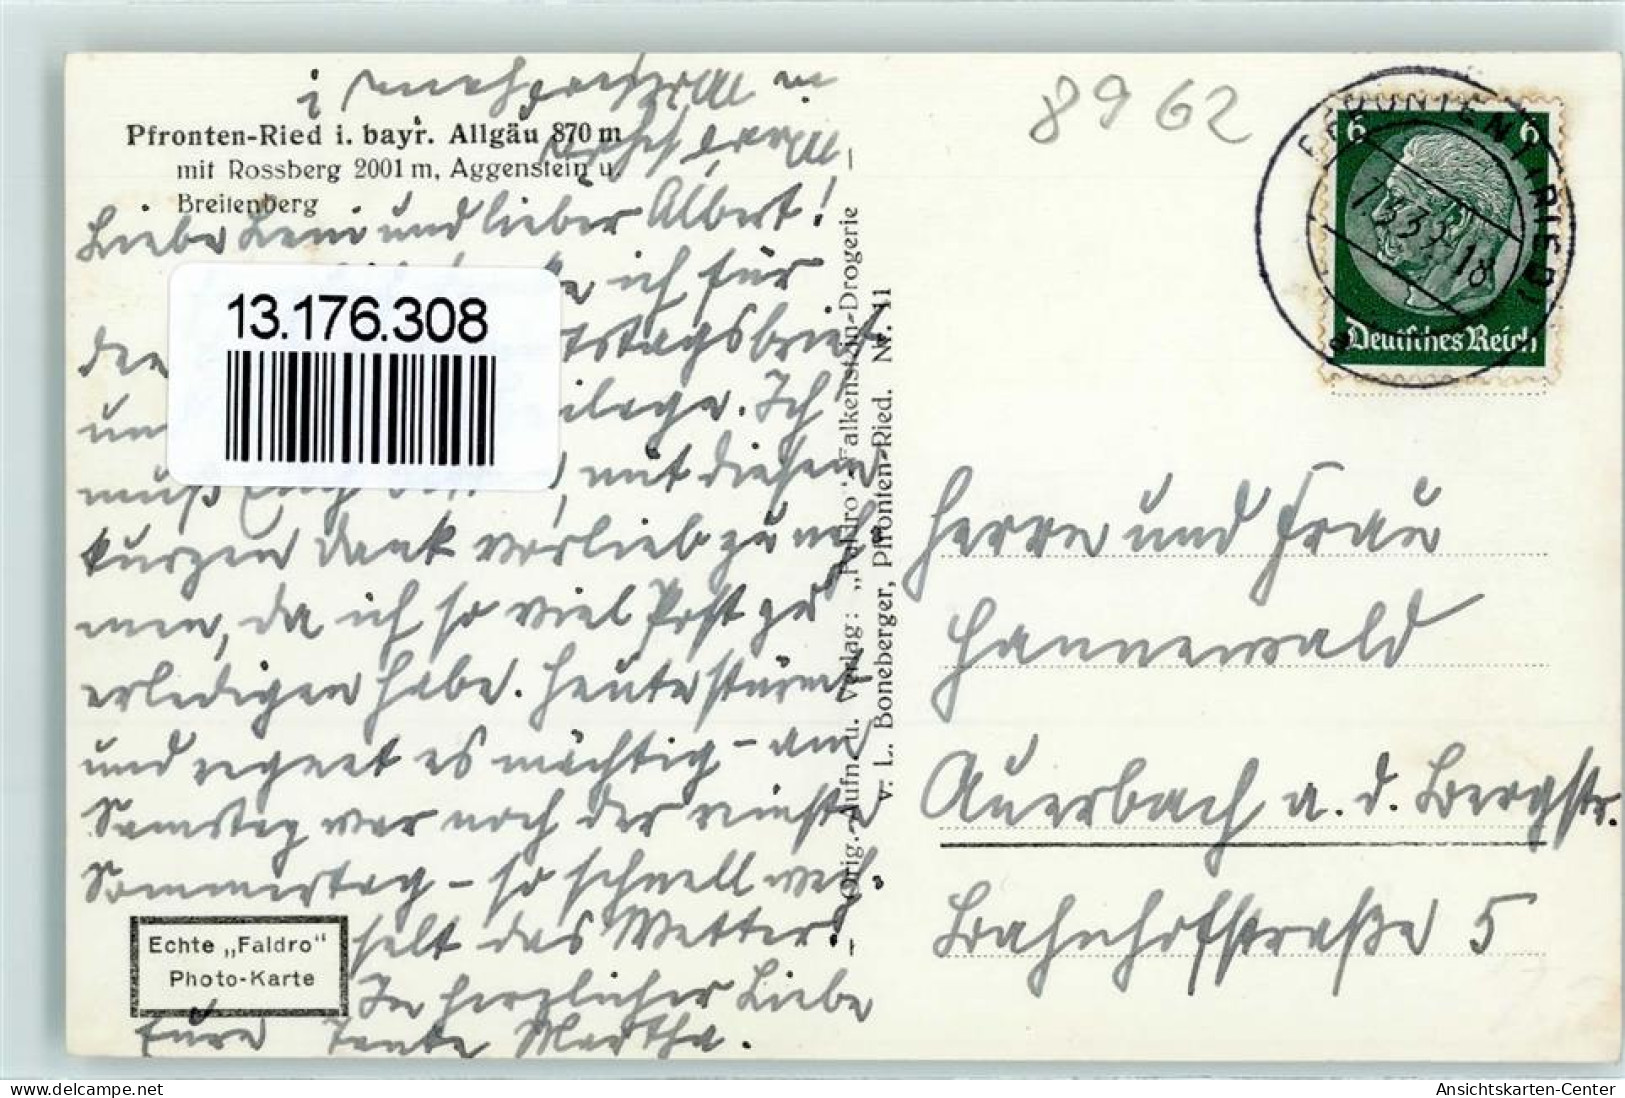 Pfronten-Ried i. bayr. Allgäu 870 m
mit Rossberg 2001 m, Aggenstein u.
Breitenberg
Liebe Leni und lieber Albert!
ich für
den
tstagsbrief
un
ilage. Ich
muß Euch bitten, mit diesem
kurzen Dank vorlieb zu neh
men, da ich so viel Post zu
erledigen habe. Heute stürmt
und regnet es mächtig – am
Samstag war noch der reinste
Sommertag – so schnell wech
selt das Wetter!
In herzlicher Liebe
Eure Tante Martha.
Echte „Faldro“
Photo-Karte
Orig.-Aufn. u. Verlag: „Faldro“, Falkenstein-Drogerie
v. L. Boneberger, Pfronten-Ried. Nr. 11
13.176.308
8962
PFRONTEN (RIED)
6 6
Deutsches Reich
Herrn und Frau
Hannewald
Auerbach a. d. Bergstr.
Bahnhofstraße 5
www.delcampe.net
Ansichtskarten-Center